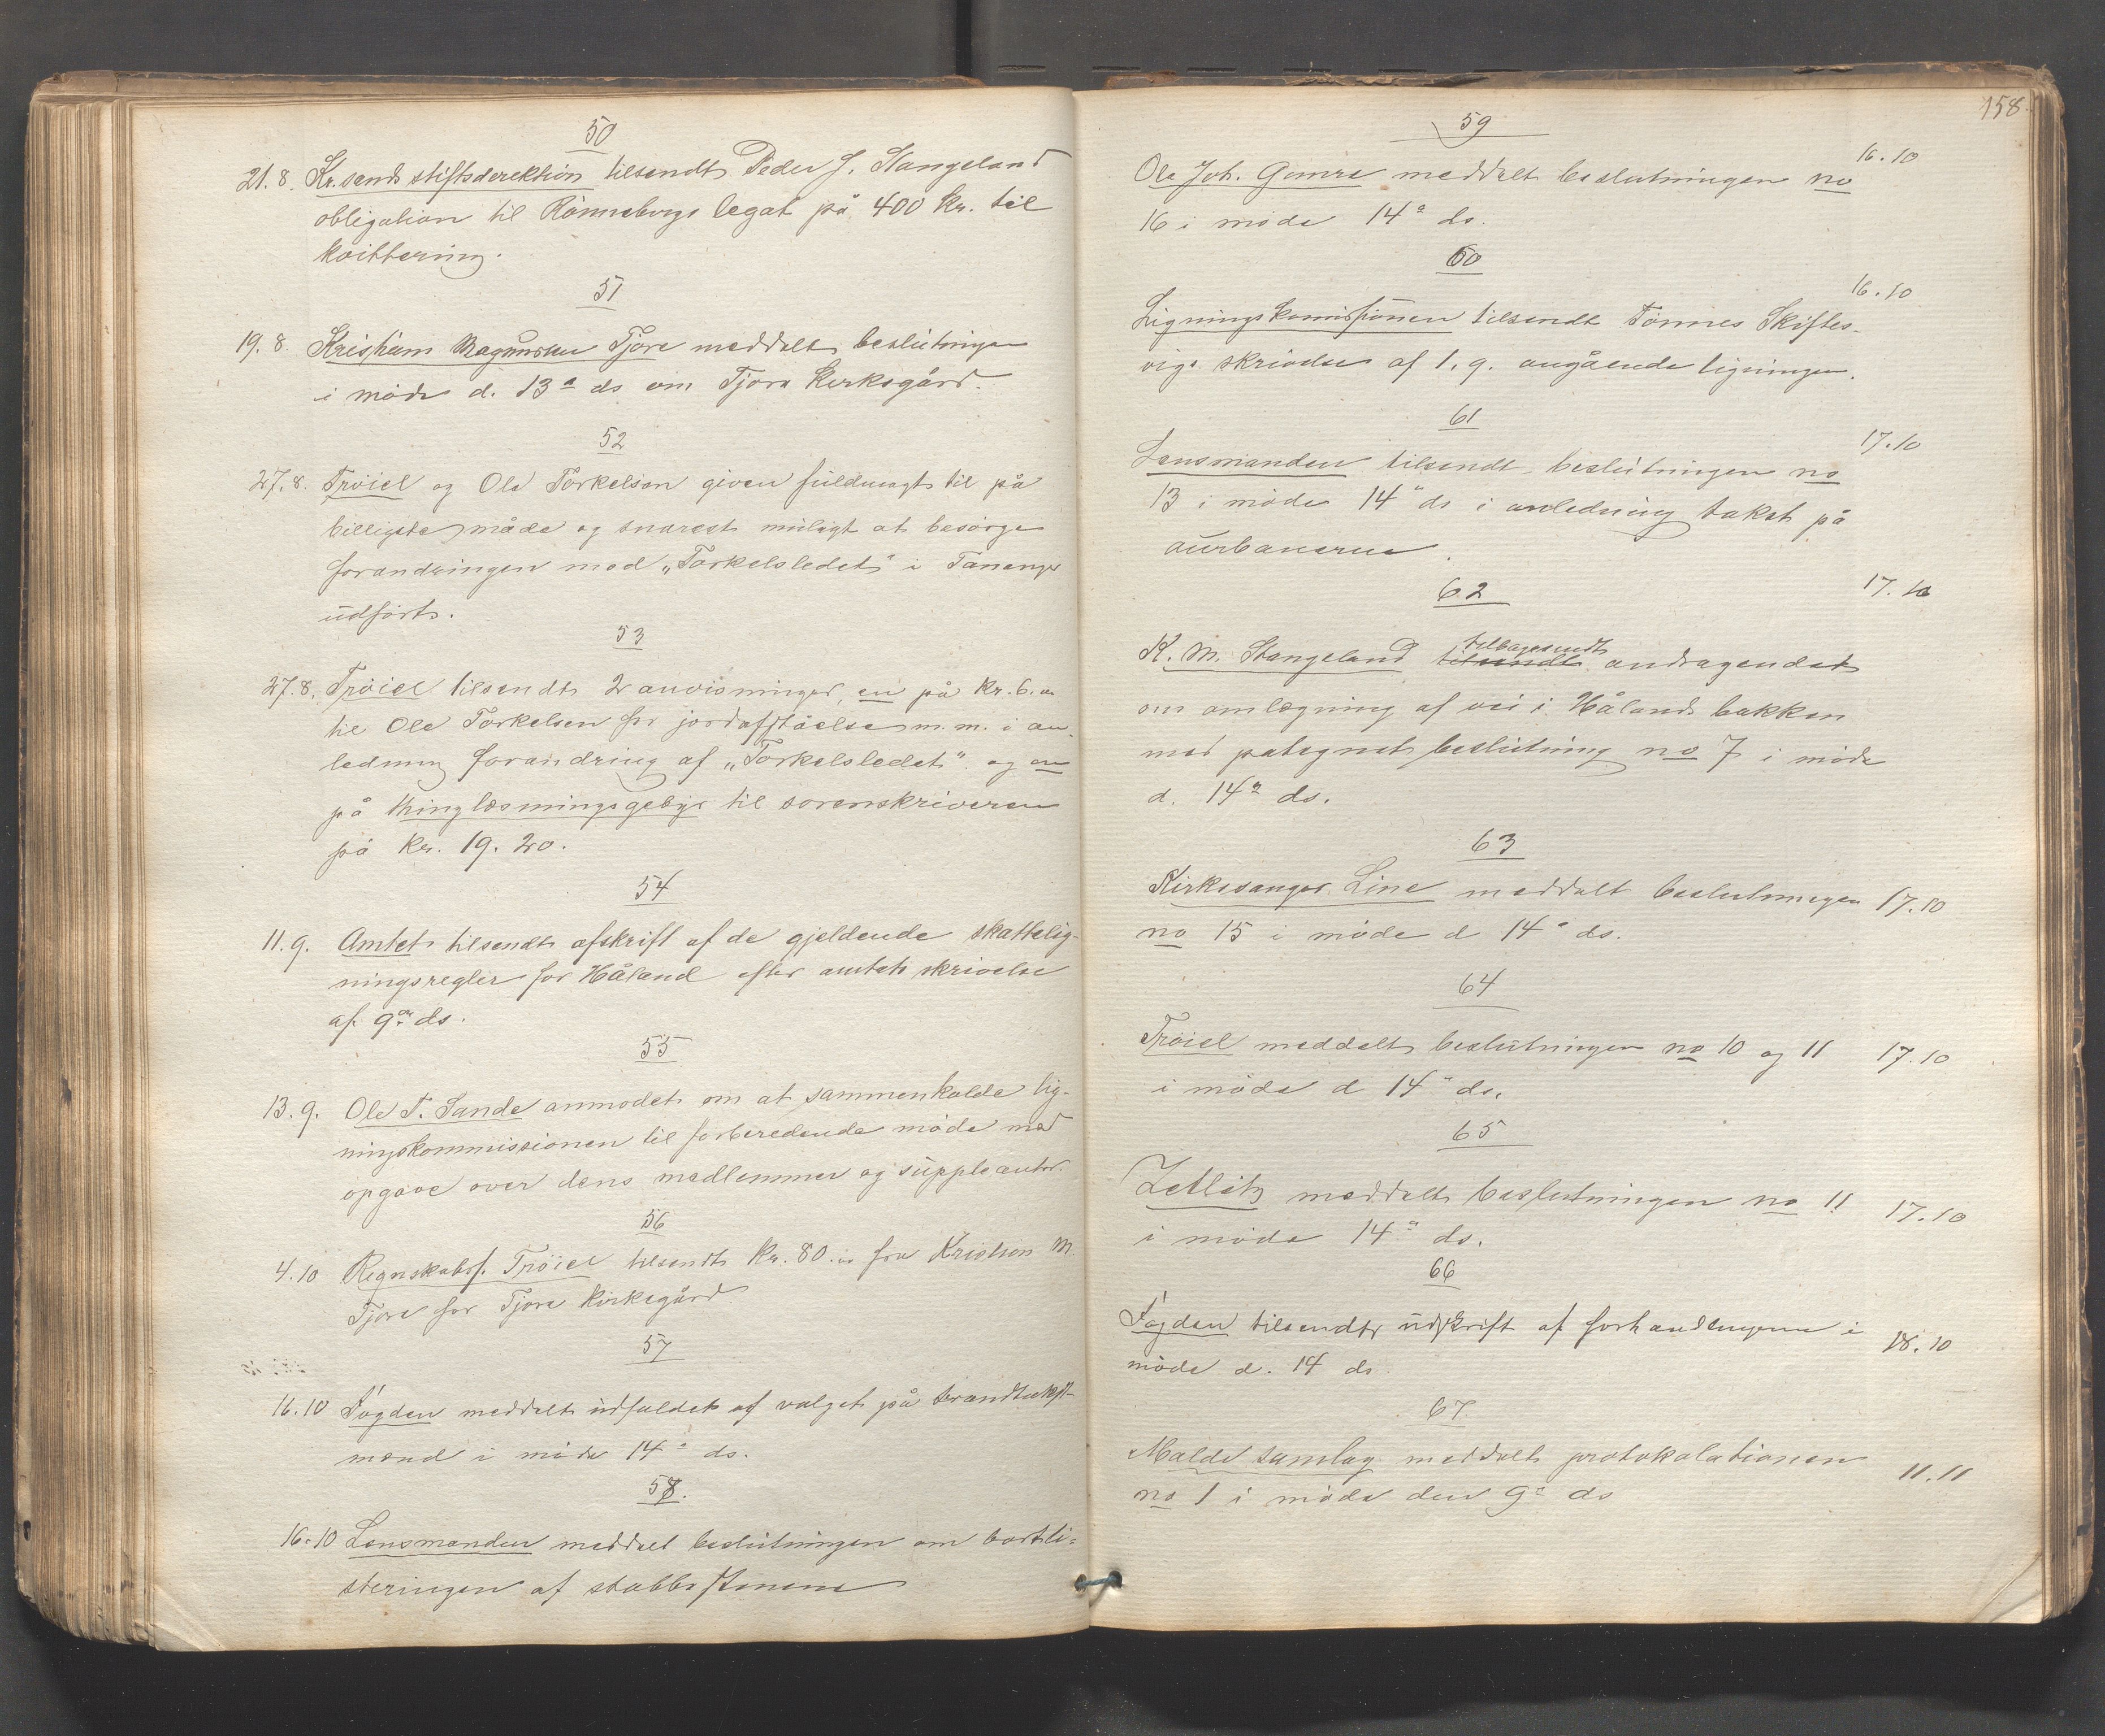 50
21.8. Kr.sands stiftsderektion tilsendt Peder J. Stangeland
obligation til Rønnebergs legat på 400 kr. til
kvittering.
51
19.8 Kristian Magnussen Tjora meddelt beslutningen
i møde d. 13ᵉ ds om Tjora Kirkegård.
52
27.8. Trøiel og Ole Torkelsen given fuldmagt til på
billigste måde og snarest muligt at besørge
forandringen med „Torkelsledet" i Tananger
udført.
53
27.8. Trøiel tilsendt 2 anvisninger, en på kr. 6.00
til Ole Torkelsen for jordafståelse m.m. i an-
ledning forandring af „Torkelsledet" og en
på thinglæsningsgebyr til sorenskriveren
på kr. 19.20.
54
11.9. Amtet tilsendt afskrift af de gjeldende skattelig-
ningsregler for Håland efter amtets skrivelse
af 9de ds.
55
13.9. Ole T. Sande anmodet om at sammenkalde lig-
ningskommissionen til forberedende møde med
opgave over dens medlemmer og suppleanter.
56
4.10 Regnskabsf. Trøiel tilsendt kr. 80.00 fra Kristian M.
Tjora for Tjora kirkegård
57
16.10 Fogden meddelt udfaldet af valget på brandtakst-
mænd i møde 14ᵉ ds.
58.
16.10 Lensmanden meddelt beslutningen om bortli-
steringen af stabbestenene
158.
59
Ole Joh. Gimra meddelt beslutningen no 16.10
16 i møde 14ᵉ ds.
60
Ligningskomissionen tilsendt Tønnes Skiftes- 16.10
vigs skrivelse af 1.9. angående ligningen.
61
Lensmanden tilsendt beslutningen no 17.10
13 i møde 14ᵉ ds i anledning takst på
aurbanerne.
62
17.10
K. M. Stangeland tilsendt tilbagesendt andragendet
om omlægning af vei i Hålands bakken
med påtegnet beslutning no 7 i møde
d. 14ᵉ ds.
63
Kirkesanger Line meddelt beslutningen 17.10
no 15 i møde d 14ᵉ ds.
64
Trøiel meddelt beslutningen no 10 og 11 17.10
i møde d 14ᵉ ds.
65
Zetlitz meddelt beslutningen no 11 17.10
i møde 14ᵉ ds.
66
Fogden tilsendt udskrift af forhandlingerne i 18.10
møde d. 14 ds.
67
Malde samlag meddelt protokolationen 11.11
no 1 i møde den 9ᵉ ds